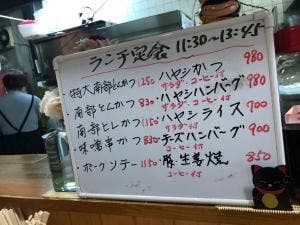 ランチ定食 11:30~13:45
・特大南部とんかつ 1250
・南部とんかつ 930
・南部ヒレかつ 1150
・味噌串かつ 830
・ポークソテー 1150
・ハヤシかつ 980
サラダ・コーヒー付
・ハヤシハンバーグ 980
サラダ・コーヒー付
・ハヤシライス 700
サラダ・コーヒー付
・チーズハンバーグ 900
コーヒー付
・豚生姜焼 850
コーヒー付